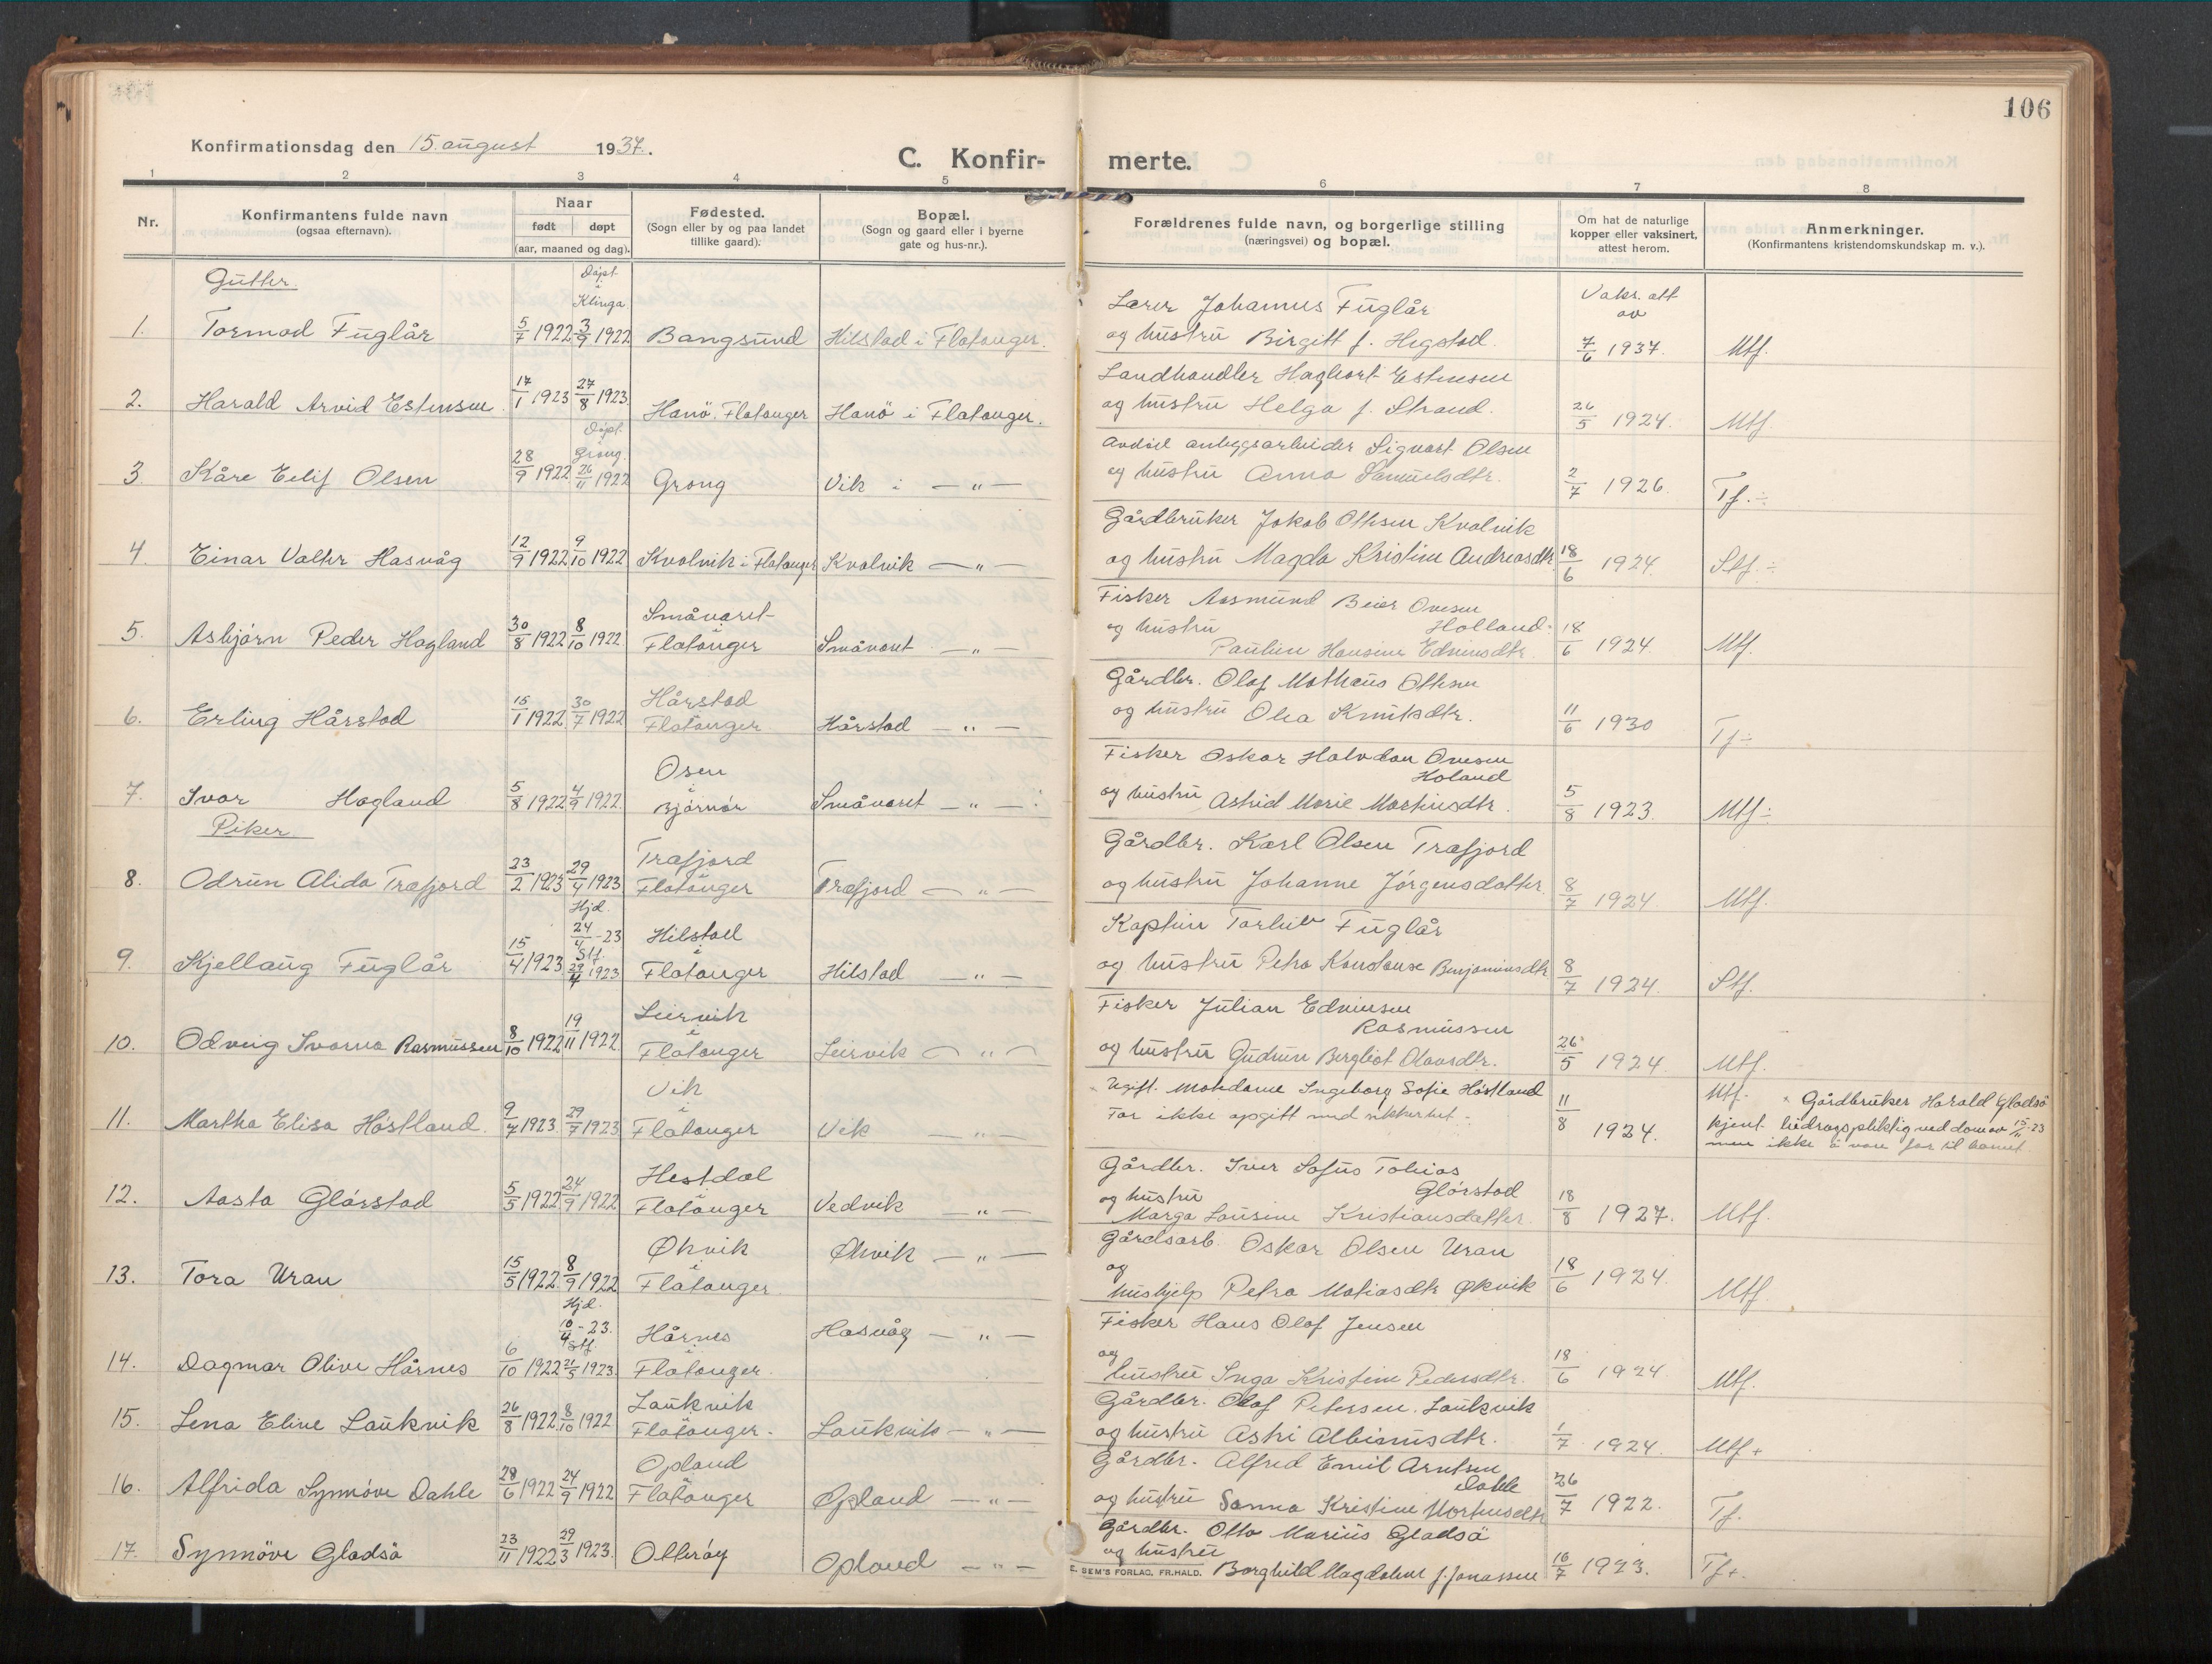 106
Konfirmationsdag den 15. august 1937.
C. Konfir- merte.
1 2 3 4 5 6 7 8
Nr.
Konfirmantens fulde navn
(ogsaa efternavn).
Naar
født døpt
(aar, maaned og dag).
Fødested.
(Sogn eller by og paa landet
tillike gaard).
Bopæl.
(Sogn og gaard eller i byerne
gate og hus-nr.).
Forældrenes fulde navn, og borgerlige stilling
(næringsvei) og bopæl.
Om hat de naturlige
kopper eller vaksinert,
attest herom.
Anmerkninger.
(Konfirmantens kristendomskundskap m. v.).
Gutter.
Døpt
i
Klinga
Vaks. att
av
Lærer Johannes Fuglår
1. Tormod Fuglår 5/7 1922 3/9 1922 Bangsund Hilstad i Flatanger. og hustru Birgitt f. Hegstad. 7/6 1937. Mtf.
Landhandler Hagbart Estensen
2. Harald Arvid Estensen 17/1 1923 27/8 1923. Hanö. Flatanger Hanö i Flatanger. og hustru Helga f. Strand. 26/5 1924. Mtf.
Døpt.
i
Grong.
Avdöd anleggsarbeider Sigvart Olsen
3. Kåre Eilif Olsen 28/9 1922 26/11 1922 Grong Vik i — " — og hustru Anna Samuelsdtr. 2/7 1926. Tf. ÷
Gårdbruker Jakob Ottesen Kvalvik
4. Einar Valter Hasvåg 12/9 1922 9/10 1922 Kvalvik i Flatanger Kvalvik — " — og hustru Magda Kristine Andreasdtr. 18/6 1924. Stf. ÷
Småvaret
i
Fisker Aasmund Beier Ovesen
Holland
5. Asbjørn Peder Hagland 30/8 1922 8/10 1922 Flatanger Småvaret — " — og hustru 18/6 1924. Mtf.
Pauline Hansine Edvinsdtr.
Hårstad
Gårdbr. Olaf Matheus Ottesen
6. Erling Hårstad 15/1 1922. 30/7 1922 Flatanger Hårstad — " — og hustru Olea Knutsdtr. 11/6 1930 Tf ÷
Osen
i
Fisker Oskar Halvdan Ovesen
Holand
7. Ivar Hagland 5/8 1922 4/9 1922. Bjørnør Småvaret — " — og hustru Astrid Marie Martinsdtr. 5/8 1923. Mtf ÷
Piker
Træfjord
i
Gårdbr. Karl Olsen Træfjord
8. Odrun Alida Træfjord 23/2 1923 29/4 1923 Flatanger Træfjord — " — og hustru Johanne Jørgensdatter. 8/7 1924 Mtf.
Hjd.
24/4 - 23
Stf.
Hilstad
i
Kaptein Torleiv Fuglår
9. Kjellaug Fuglår 15/4 1923. 29/4 1923 Flatanger Hilstad — " — og hustru Petra Konstanse Benjaminsdtr. 8/7 1924. Stf.
Leirvik
i
Fisker Julian Edvinsen
Rasmussen
10. Odveig Ivarna Rasmussen 8/10 1922 19/11 1922. Flatanger Leirvik — " — og hustru Gudrun Bergliot Olavsdtr. 26/5 1924. Mtf.
Vik
i
Ugift. Ingeborg Sofie Høstland
Far ikke opgitt med sikkerhet.
11. Martha Elisa Høstland. 9/7 1923. 29/7 1923 Flatanger Vik — " — 11/8 1924. Mtf. × Gårdbruker Harald Gladsö
kjent bidragspliktig ved dom av 15/11-23
men ikke å være far til barnet.
Hestdal
i
Gårdbr. Iver Sofus Tobias
Glørstad
12. Aasta Glørstad 5/5 1922. 24/9 1922 Flatanger Vedvik — " — og hustru 18/8 1927. Mtf.
Marga Lousine Kristiansdatter.
Økvik
i
Økvik — " —
Gårdsarb. Oskar Olsen Uran
og
13. Tora Uran 15/5 1922. 8/9 1922 Flatanger. hushjelp Petra Matiasdtr Økvik 18/6 1924. Mtf.
Hjd.
10/4 - 23.
Stf.
Hårnes
i
Hasvåg — " —
Fisker Hans Olaf Jensen
og
14. Dagmar Olive Hårnes 6/10 1922 21/5 1923. Flatanger. hustru Inga Kristine Pedersdtr. 18/6 1924 Mtf.
Laukvik
i
Gårdbr. Olaf Petersen. Laukvik
15. Lena Eline Laukvik 26/8 1922 8/10 1922 Flatanger. Laukvik — " — og hustru Astri Albinusdtr. 1/7 1924. Mtf +
Opland
i
Gårdbr. Alfred Emil Arntsen
Dahle
16. Alfrida Synnöve Dahle 28/6 1922 24/9 1922 Flatanger Opland — " — og hustru Sanna Kristine Mortensdtr 26/7 1922. Tf.
Gårdbr. Otto Marius Gladsö
og hustru
17. Synnöve Gladsö 23/11 1922 29/3 1923. Otteröy Opland — " — Borghild Magdalene f. Jonassen 16/7 1923. Tf +.
E. SEM'S FORLAG, FR.HALD.